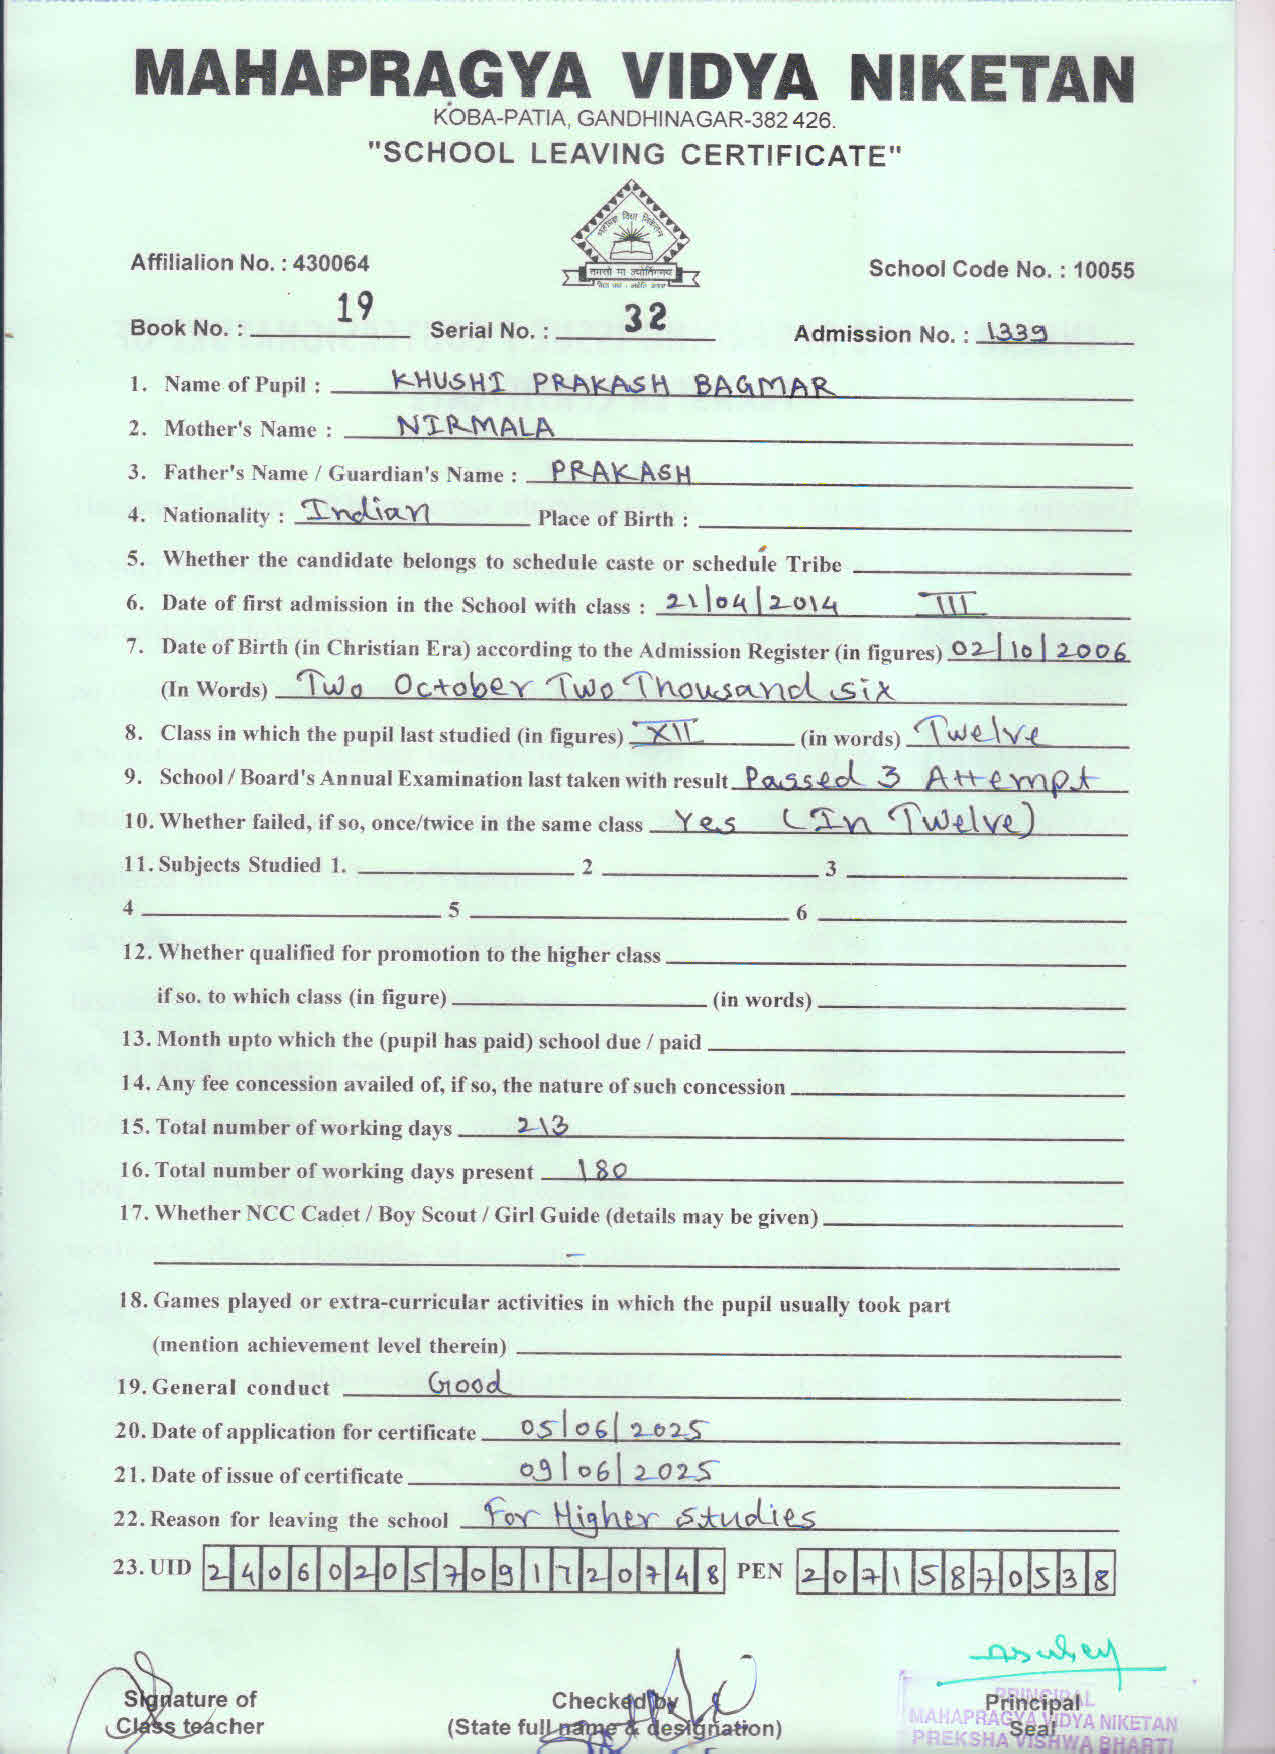 MAHAPRAGYA VIDYA NIKETAN
KOBA-PATIA, GANDHINAGAR-382 426.
"SCHOOL LEAVING CERTIFICATE"
महाप्रज्ञ विद्या निकेतन
तमसो मा ज्योतिर्गमय
Affilialion No. : 430064
School Code No. : 10055
Book No. : 19 Serial No. : 32 Admission No. : 1339
1. Name of Pupil : KHUSHI PRAKASH BAGMAR
2. Mother's Name : NIRMALA
3. Father's Name / Guardian's Name : PRAKASH
4. Nationality : Indian Place of Birth :
5. Whether the candidate belongs to schedule caste or schedule Tribe
6. Date of first admission in the School with class : 21/04/2014 III
7. Date of Birth (in Christian Era) according to the Admission Register (in figures) 02/10/2006
(In Words) Two October Two Thousand six
8. Class in which the pupil last studied (in figures) XII (in words) Twelve
9. School / Board's Annual Examination last taken with result Passed 3 Attempt
10. Whether failed, if so, once/twice in the same class Yes (In Twelve)
11. Subjects Studied 1. 2 3
4 5 6
12. Whether qualified for promotion to the higher class
if so. to which class (in figure) (in words)
13. Month upto which the (pupil has paid) school due / paid
14. Any fee concession availed of, if so, the nature of such concession
15. Total number of working days 213
16. Total number of working days present 180
17. Whether NCC Cadet / Boy Scout / Girl Guide (details may be given)
–
18. Games played or extra-curricular activities in which the pupil usually took part
(mention achievement level therein)
19. General conduct Good
20. Date of application for certificate 05/06/2025
21. Date of issue of certificate 09/06/2025
22. Reason for leaving the school For Higher studies
23. UID 240602057091720748 PEN 20715870538
Signature of
Class teacher
Checked by
(State full name & designation)
Principal
Seal
PRINCIPAL
MAHAPRAGYA VIDYA NIKETAN
PREKSHA VISHWA BHARTI